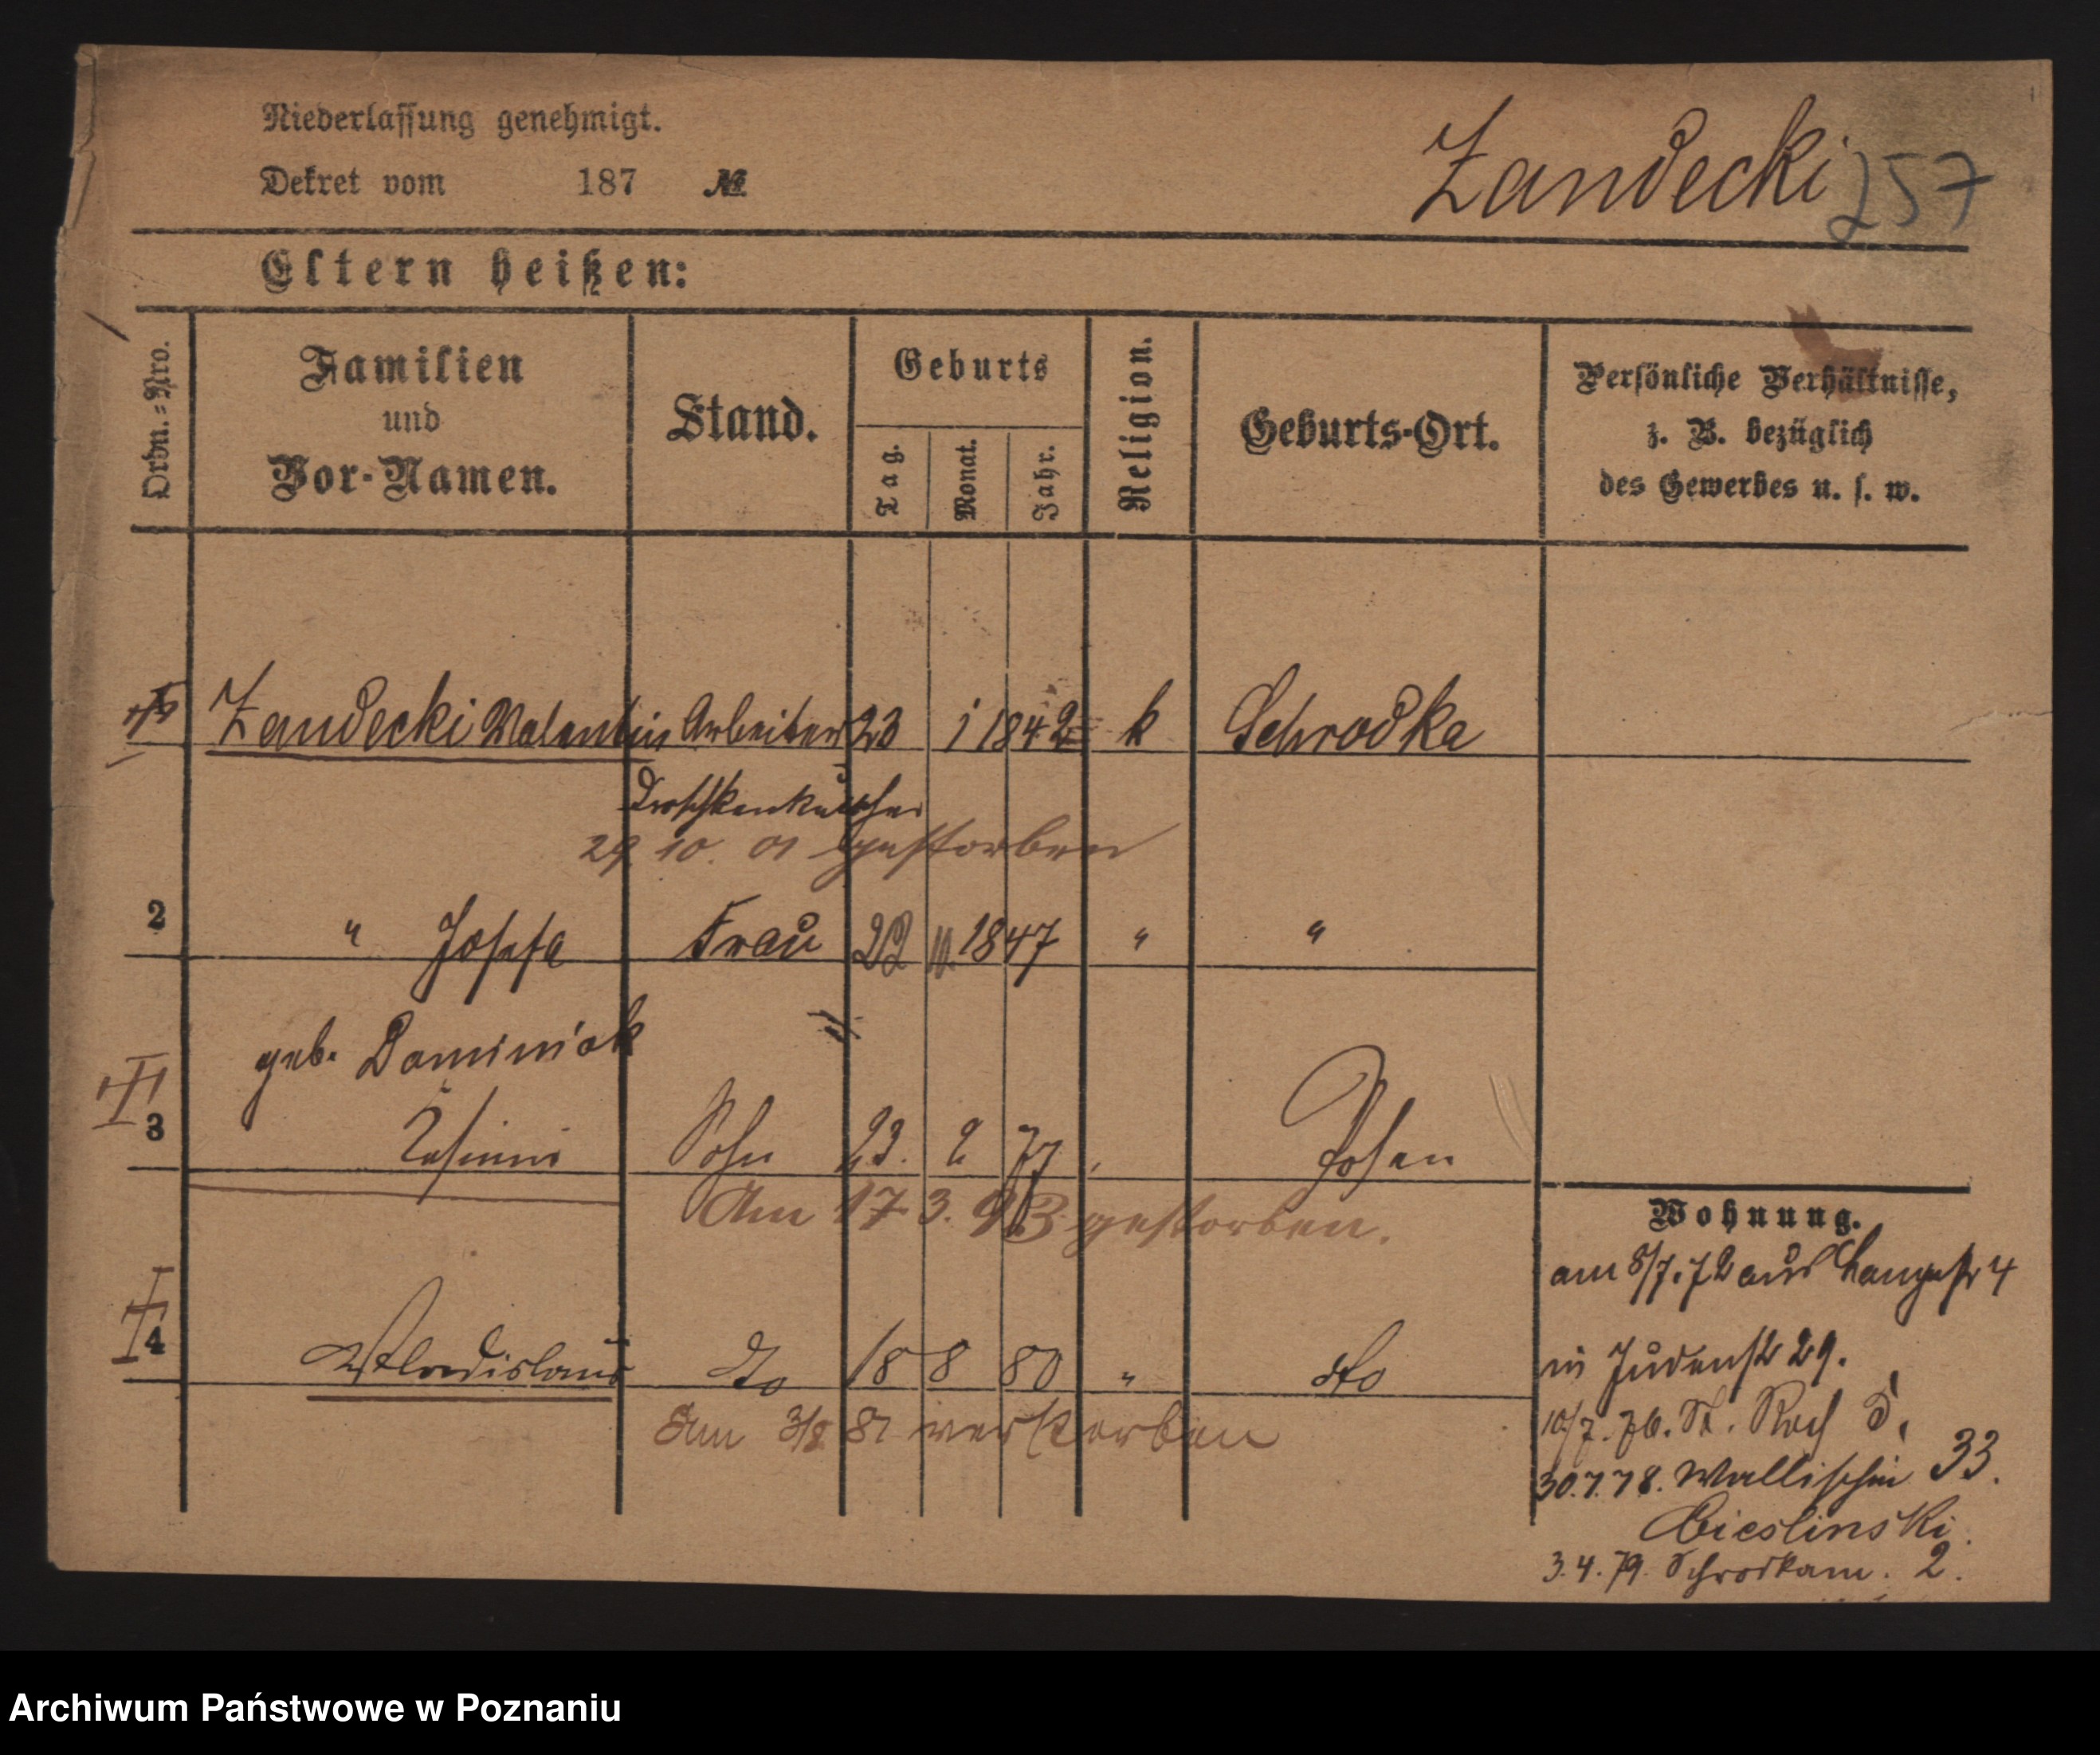 Niederlassung genehmigt.
Dekret vom 187 №
Zandecki 257
Eltern heißen:
Ordn.-Nro.
Familien und Vor-Namen.
Stand.
Geburts
Tag.
Monat.
Jahr.
Religion.
Geburts-Ort.
Persönliche Verhältnisse,
z. B. bezüglich
des Gewerbes u. s. w.
Zandecki Valentin Arbeiter 23 1 1842 k Schrodka
Droschkenkutscher
29. 10. 01 gestorben
2 " Josefa Frau 22 10. 1847 " "
geb. Dominiak
3 Sohn 23. 2 77 Posen
Am 17 3. 93 gestorben.
4 Wladislaus do 18 8 80 " do
Am 3/8 81 verstorben
Wohnung.
am 8/7.72 aus Langestr 4
in Judenstr 29.
10/7. 76. St. Roch 5.
30.7.78. Wallischei 33.
Cieslinski.
3.4.79. Schrodkam. 2.
Archiwum Państwowe w Poznaniu